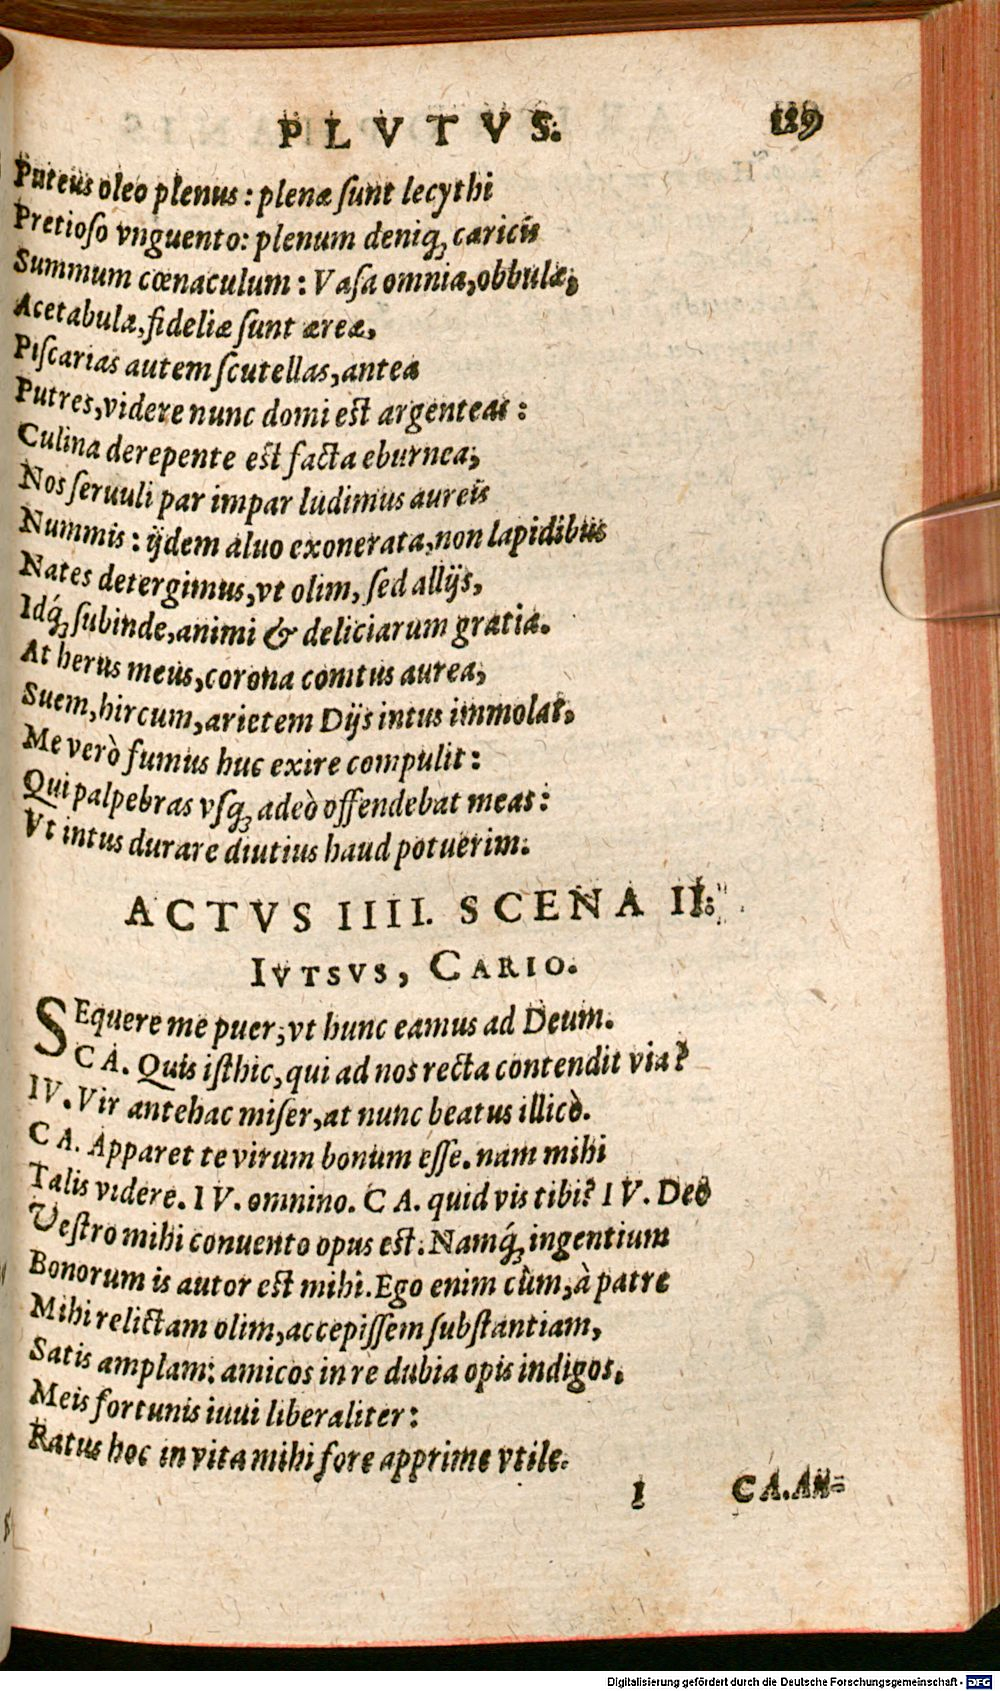 PLVTVS. 129
Puteus oleo plenus: plenæ ſunt lecythi
Pretioſo vnguento: plenum deniq́ꝫ caricis
Summum cœnaculum: Vaſa omnia, obbulæ,
Acetabula, fideliæ ſunt æreæ,
Piſcarias autem ſcutellas, antea
Putres, videre nunc domi eſt argenteas:
Culina derepente eſt facta eburnea,
Nos ſeruuli par impar ludimus aureis
Nummis: ijdem aluo exonerata, non lapidibus
Nates detergimus, vt olim, ſed allijs,
Idq́ꝫ ſubinde, animi & deliciarum gratia.
At herus meus, corona comtus aurea,
Suem, hircum, arietem Dijs intus immolat.
Me verò fumus huc exire compulit:
Qui palpebras vſqꝫ adeò offendebat meas:
Vt intus durare diutius haud potuerim.
ACTVS IIII. SCENA II.
IVTSVS, CARIO.
SEquere me puer, vt hunc eamus ad Deum.
CA. Quis iſthic, qui ad nos recta contendit via?
IV. Vir antehac miſer, at nunc beatus illicò.
CA. Apparet te virum bonum eſſe. nam mihi
Talis videre. IV. omnino. CA. quid vis tibi? IV. Deo
Veſtro mihi conuento opus eſt. Namq́ꝫ ingentium
Bonorum is autor eſt mihi. Ego enim cùm, à patre
Mihi relictam olim, accepiſſem ſubſtantiam,
Satis amplam: amicos in re dubia opis indigos,
Meis fortunis iuui liberaliter:
Ratus hoc in vita mihi fore apprime vtile.
I CA. An=
Digitalisierung gefördert durch die Deutsche Forschungsgemeinschaft - DFG